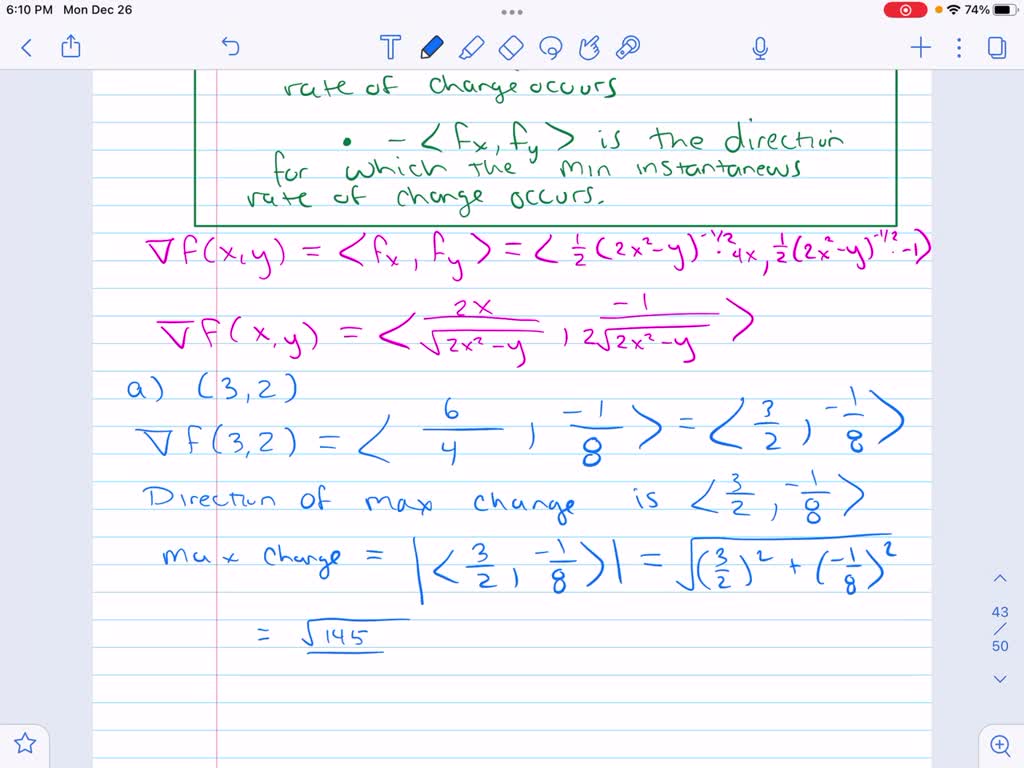 6:10 PM Mon Dec 26
74%
rate of change occurs
• - < fx, fy > is the direction
for which the min instantanews
rate of change occurs.
∇f(x,y) = <fx, fy> = < 1/2 (2x²-y)^-1/2 · 4x, 1/2 (2x²-y)^-1/2 · -1 >
∇f(x,y) = < 2x/√(2x²-y), -1/2√(2x²-y) >
a) (3,2)
∇f(3,2) = < 6/4, -1/8 > = < 3/2, -1/8 >
Direction of max change is < 3/2, -1/8 >
max change = |< 3/2, -1/8 >| = √((3/2)² + (-1/8)²)
= √145
43
/
50